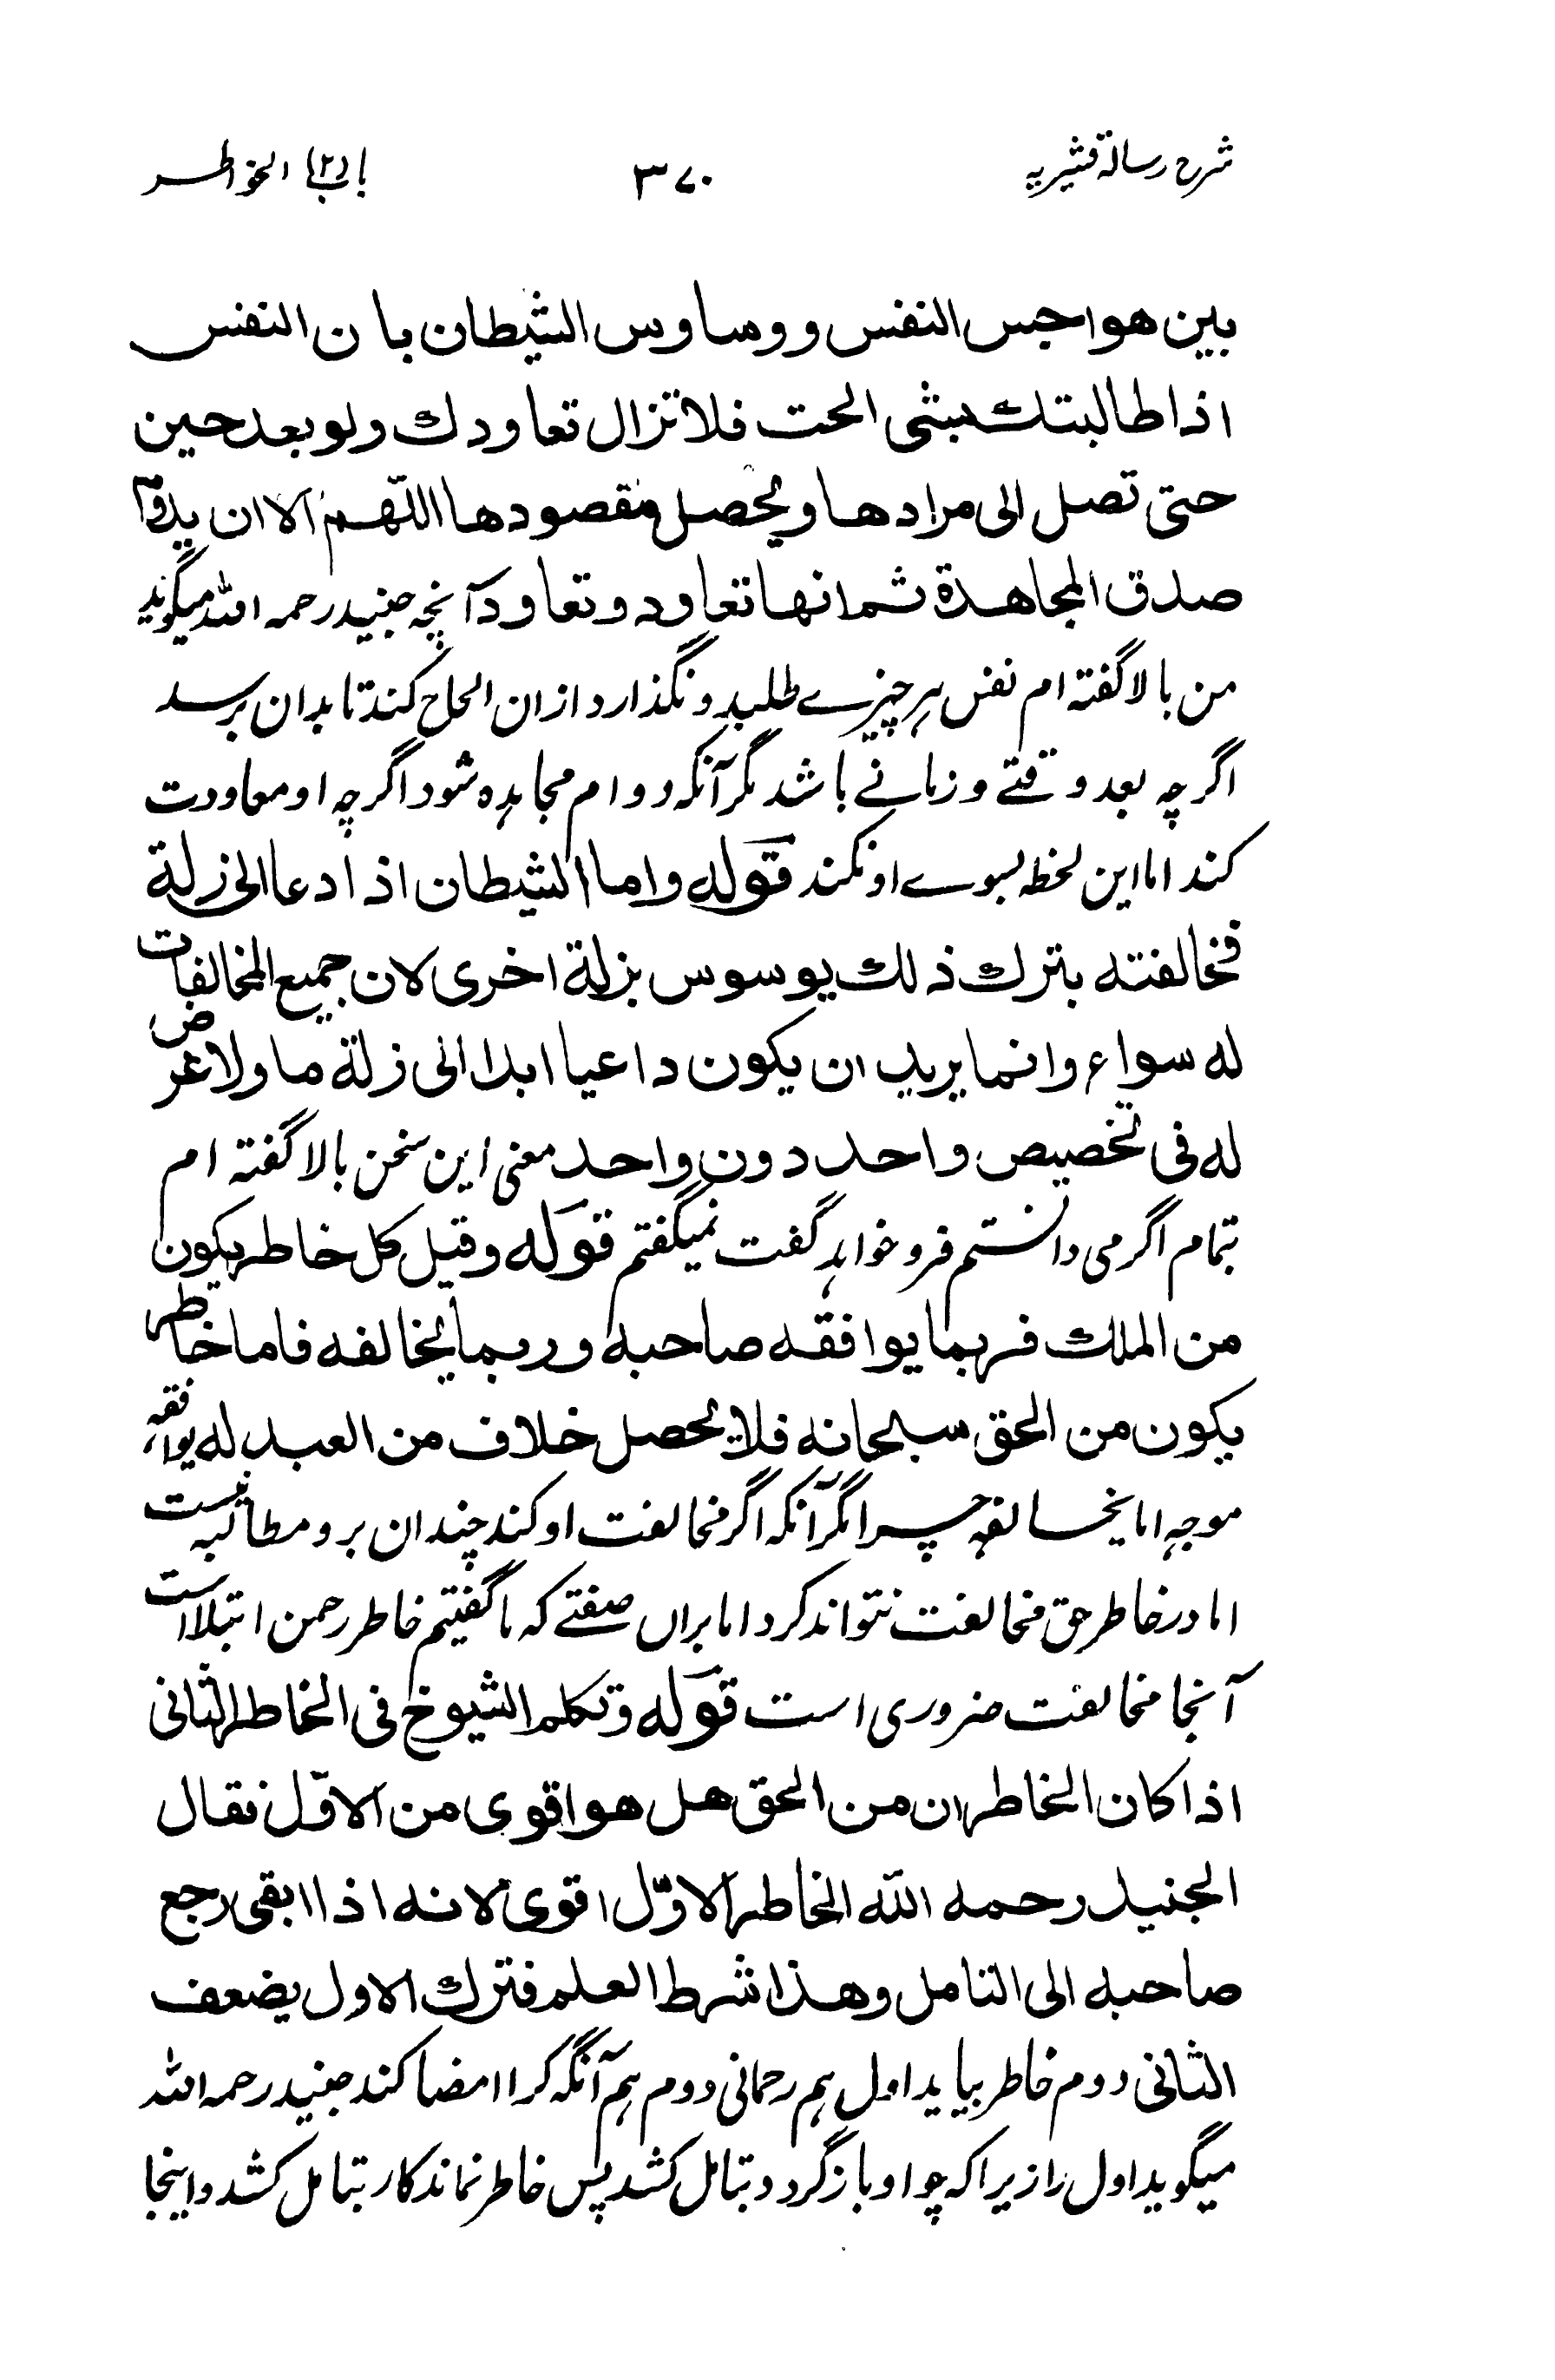 شرح رسالۀ قشیریہ ۳۷۰ باب (۲) الخواطر
بين هواجس النفس ووساوس الشيطان بان النفس
اذا طالبتك بشی الحت فلا تزال تعاودك ولو بعد حين
حتى تصل الى مرادها ويحصل مقصودها اللّهم الا ان يدوم
صدق المجاهدة ثم انها تعاود وتعاود آنچہ جنید رحمہ اللہ میگوید
من بالا گفتہ ام نفس ہر چیزے طلبد و نگذارد ازان الحاح کند تا بدان برسد
اگرچہ بعد وقتے و زمانے باشد مگر آنکہ دوام مجاہدہ شود اگرچہ او معاودت
کند اما این لحظہ بسوے او نکند قوله واما الشيطان اذا دعا الى زلة
فخالفته بترك ذلك يوسوس بزلة اخرى لان جميع المخالفات
له سواء وانما يريد ان يكون داعيا ابدا الى زلة ما ولا غرض
له فى تخصيص واحد دون واحد معنی این سخن بالا گفتہ ام
تمام اگر می دانستم فرو خواہد گفت نمیگفتم قوله وقيل كل خاطر يكون
من الملك فربما يوافقه صاحبه وربما يخالفه فاما خاطر
يكون من الحق سبحانه فلا يحصل خلاف من العبد له یوافقہ
موجہ اما یخالفہ چرا مگر آنکہ اگر مخالفت او کند چندان برو مطالبہ نیست
اما در خاطر حق مخالفت نتواند کرد اما براں صفتے کہ ما گفتیم خاطر رحمن ابتلا است
آنجا مخالفت ضروری است قوله وتكلم الشيوخ فى الخاطر الثانى
اذا كان الخاطران من الحق هل هو اقوى من الاوّل فقال
الجنيد رحمه الله الخاطر الاوّل اقوى لانه اذا ابقى رجع
صاحبه الى التامل وهذا شرط العلم فترك الاول يضعف
الثانى دوم خاطر بیاید اول ہم رحمانی دوم ہم آنگہ کرا امضا کند جنید رحمہ اللہ
میگوید اول را زیرا کہ چو او باز گردد بتامل کشد پس خاطر نماند کار بتامل کشد و اینجا